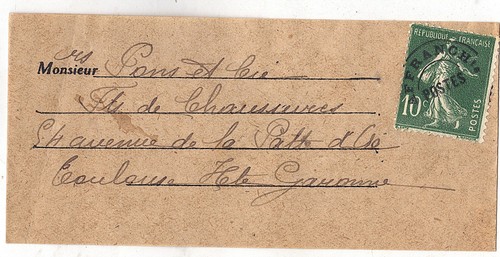 Monsieur rs Pons et Cie
Fts de Chaussures
54 avenue de la Patte d'Oie
Toulouse Hte Garonne
REPUBLIQUE FRANÇAISE
AFFRANCHts
POSTES
10c
POSTES